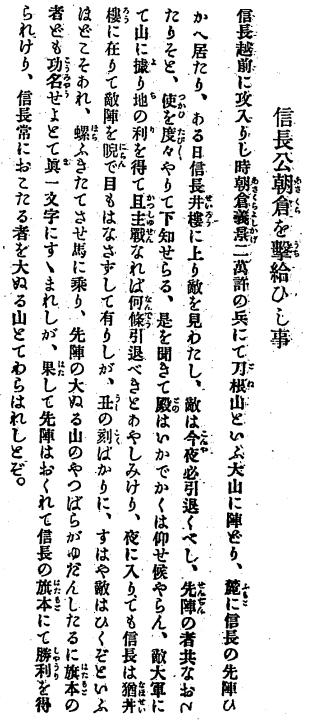 信長公朝倉を擊給ひし事
信長越前に攻入りし時朝倉義景二萬許の兵にて刀根山といふ大山に陣どり、麓に信長の先陣ひ
かへ居たり、ある日信長井樓に上り敵を見わたし、敵は今夜必引退くべし、先陣の者共なおこ
たりそと、使を度々やりて下知せらる、是を聞きて殿はいかでかくは仰せ候やらん、敵大軍に
て山に據り地の利を得て且主戰なれば何條引退べきとあやしみけり、夜に入りても信長は猶井
樓に在りて敵陣を睨で目もはなさずして有りしが、丑の刻ばかりに、すはや敵はひくぞといふ
ほどこそあれ、螺ふきたてさせ馬に乘り、先陣の大ぬる山のやつばらがゆだんしたるに旗本の
者ども功名せよとて眞一文字にすゝまれしが、果して先陣はおくれて信長の旗本にて勝利を得
られけり、信長常におこたる者を大ぬる山とてわらはれしとぞ。